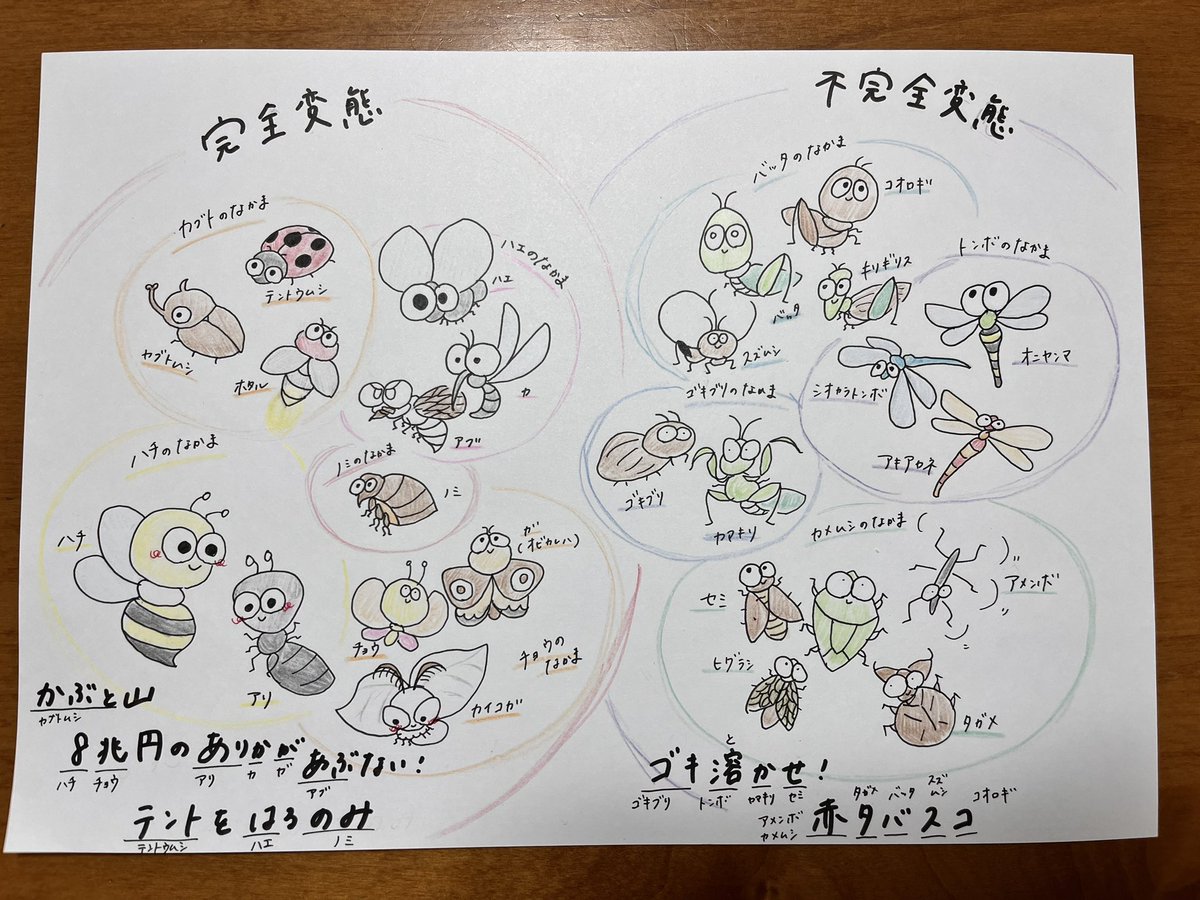 完全変態
カブトのなかま
テントウムシ
カブトムシ
ホタル
ハエのなかま
ハエ
カ
アブ
ノミのなかま
ノミ
ハチのなかま
ハチ
アリ
ガ
(オビカレハ)
チョウ
チョウの
なかま
カイコガ
かぶと山
カブトムシ
8兆円のありかがあぶない!
ハチ チョウ アリ カ ガ アブ
テントをはるのみ
テントウムシ ハエ ノミ
不完全変態
バッタのなかま
コオロギ
キリギリス
バッタ
スズムシ
トンボのなかま
オニヤンマ
シオカラトンボ
アキアカネ
ゴキブリのなかま
ゴキブリ
カマキリ
カメムシのなかま
アメンボ
セミ
ヒグラシ
タガメ
と
ゴキ溶かせ!
ゴキブリ トンボ カマキリ セミ
タガメ バッタ スズムシ コオロギ
アメンボ
カメムシ
赤タバスコ